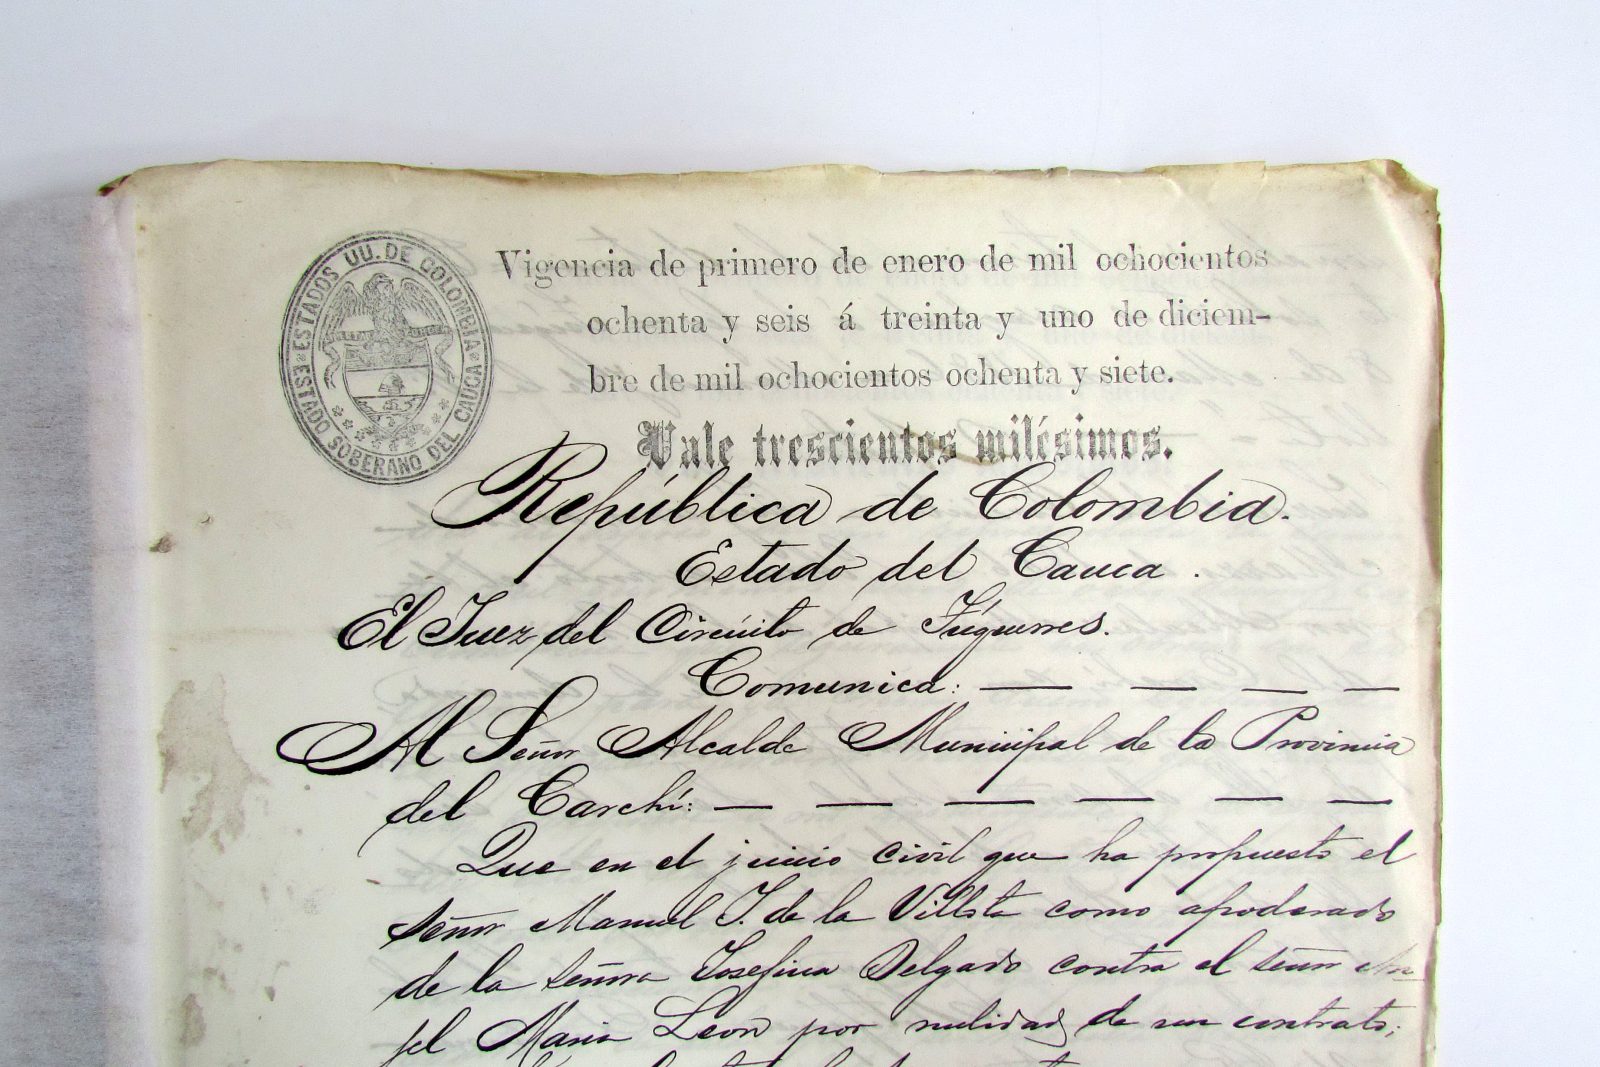 ESTADOS UU. DE COLOMBIA
ESTADO SOBERANO DEL CAUCA
Vigencia de primero de enero de mil ochocientos
ochenta y seis á treinta y uno de diciem-
bre de mil ochocientos ochenta y siete.
Vale trescientos milésimos.
República de Colombia.
Estado del Cauca.
El Juez del Circúito de Túquerres.
Comunica: — — — —
Al Señor Alcalde Municipal de la Provincia
del Carchi: — — — — — —
Que en el juicio civil que ha propuesto el
señor Manuel J. de la Villota como apoderado
de la señora Josefina Delgado contra el señor An-
jel Maria Leon por nulidad de un contrato;